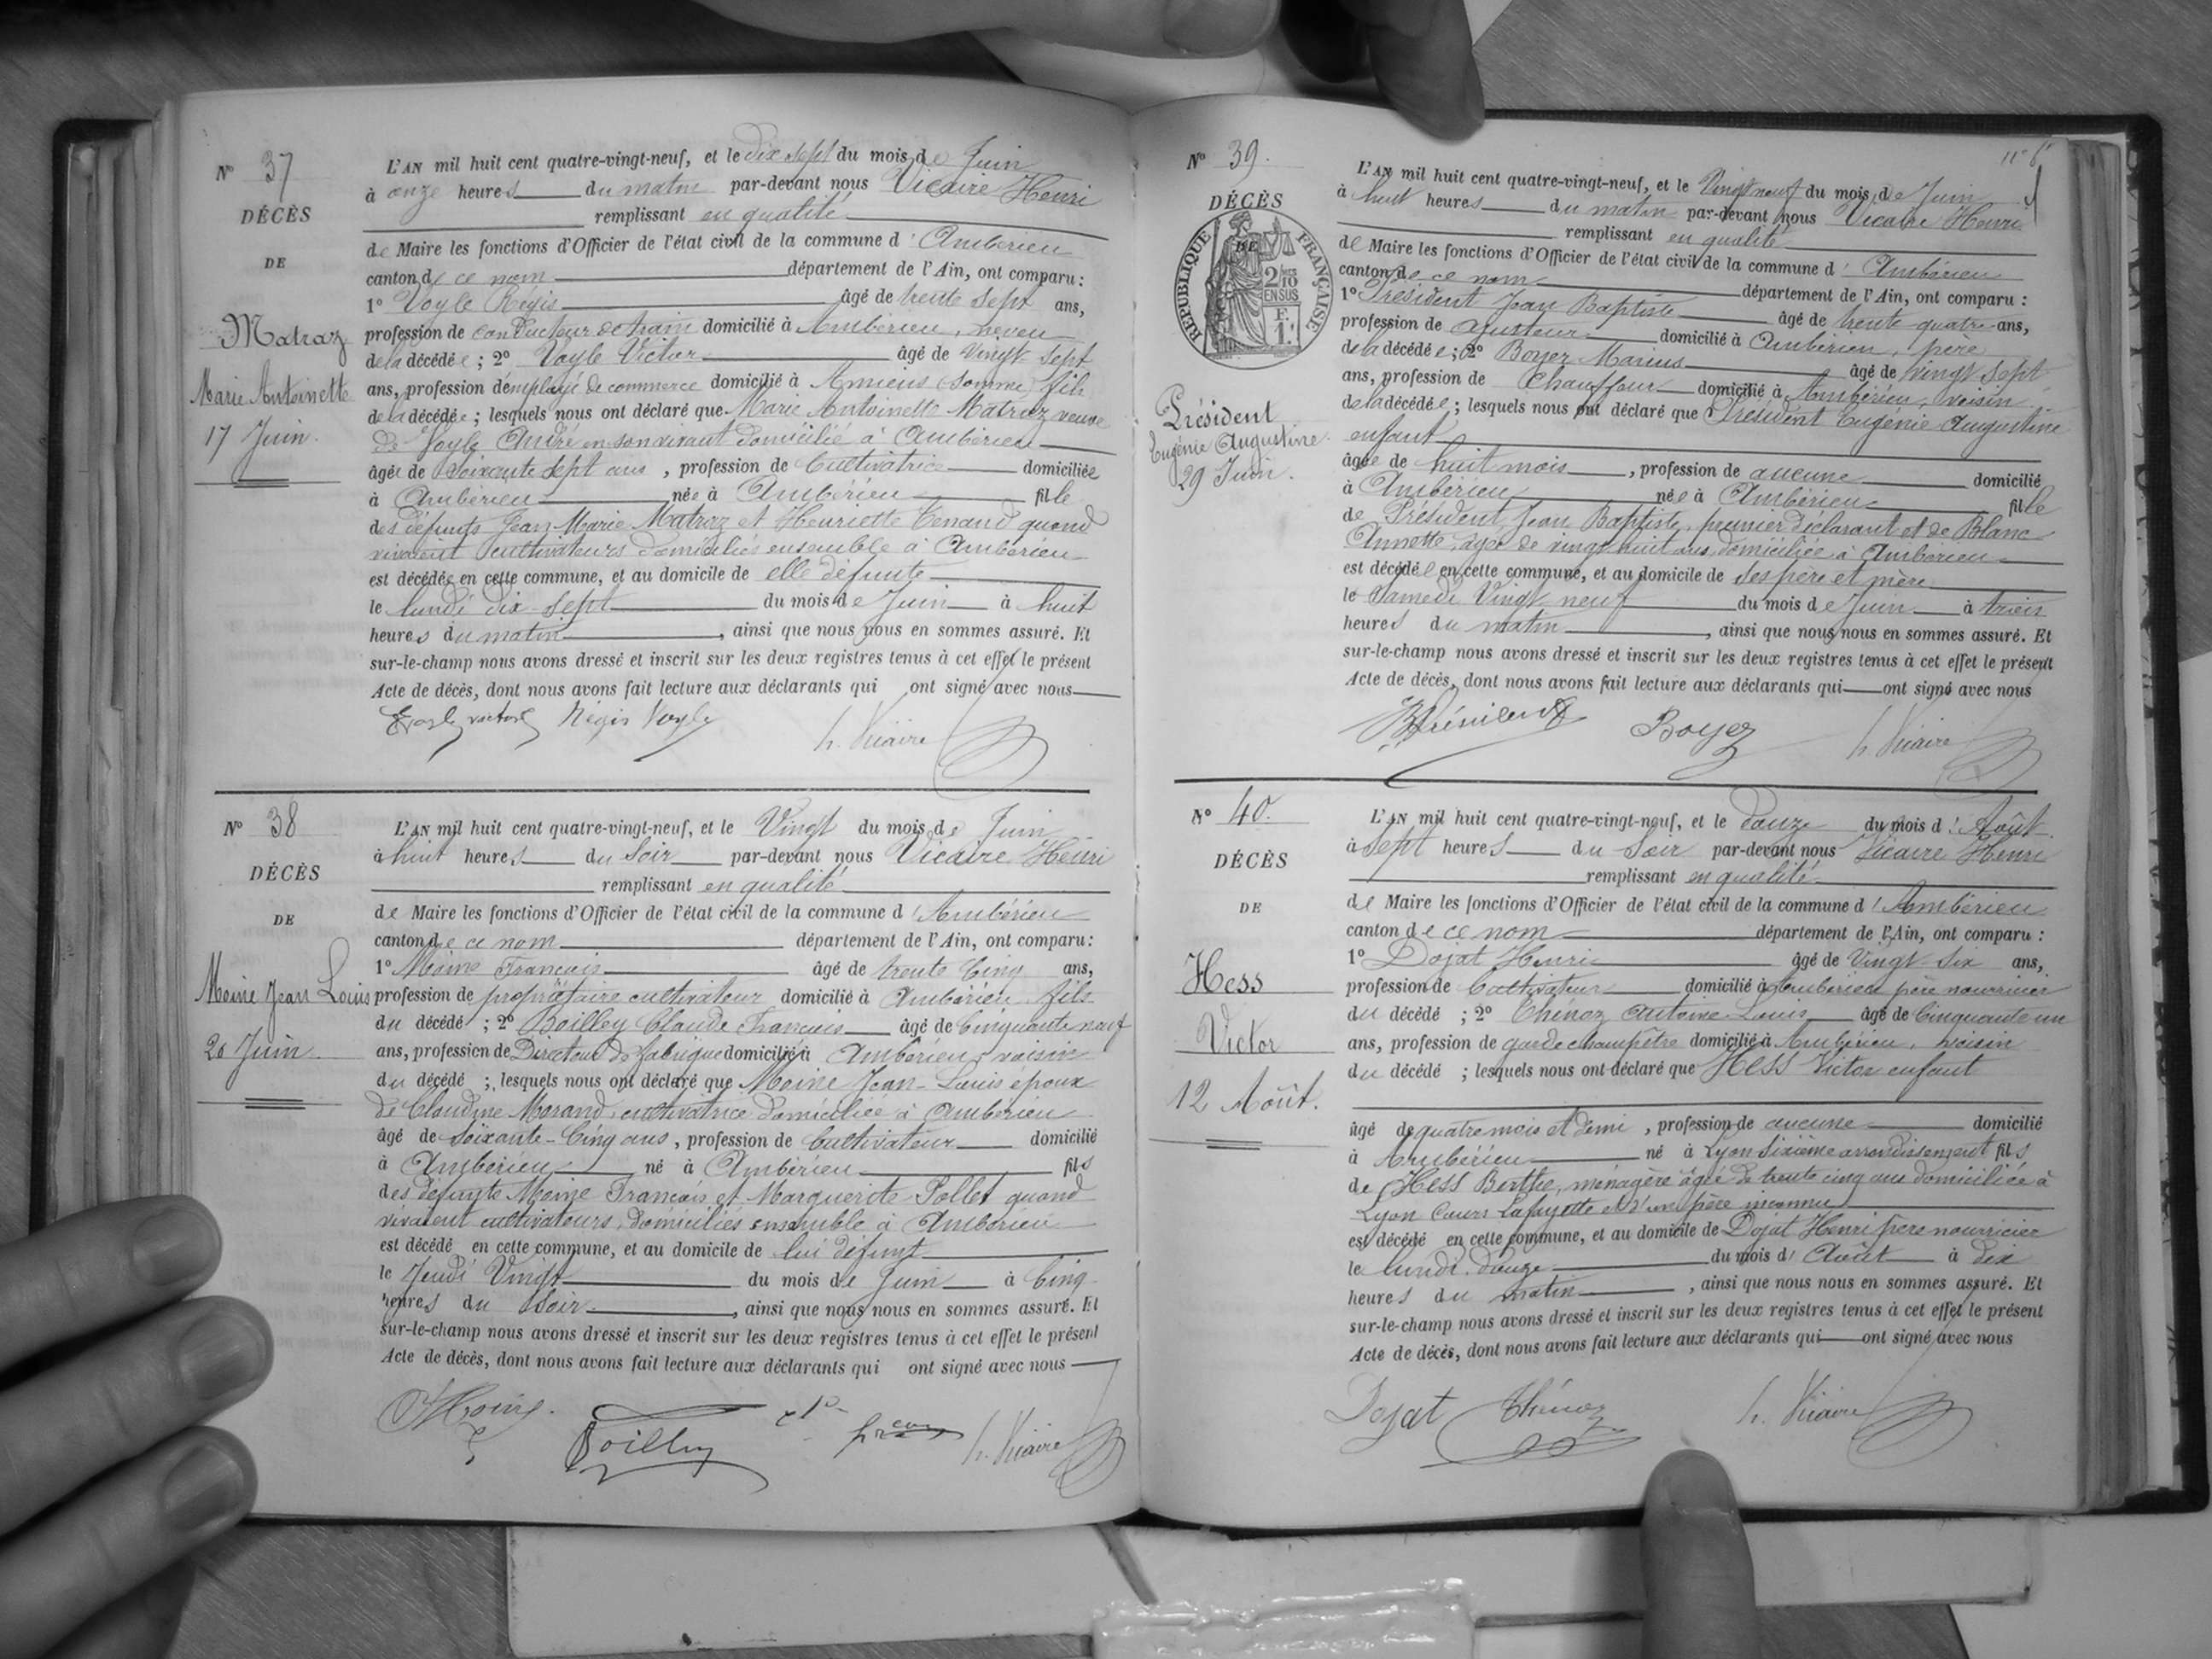 N° 37
DÉCÈS
DE
Matraz
Marie Antoinette
17 Juin.
L'AN mil huit cent quatre-vingt-neuf, et le dix sept du mois de Juin
à onze heures du matin par-devant nous Vicaire Henri
remplissant en qualité
de Maire les fonctions d'Officier de l'état civil de la commune d'Ambérieu
canton de ce nom département de l'Ain, ont comparu :
1° Voyle Régis âgé de trente sept ans,
profession de conducteur de train domicilié à Ambérieu, neveu
de la décédée ; 2° Voyle Victor âgé de vingt sept
ans, profession d'employé de commerce domicilié à Amiens (Somme) fils
de la décédée ; lesquels nous ont déclaré que Marie Antoinette Matraz veuve
de Voyle André en son vivant domicilié à Ambérieu
âgée de soixante sept ans, profession de Cultivatrice domiciliée
à Ambérieu née à Ambérieu fille
des défunts Jean-Marie Matraz et Henriette Tenand quand
vivaient cultivateurs domiciliés ensemble à Ambérieu
est décédée en cette commune, et au domicile de elle défunte
le lundi dix-sept du mois de Juin à huit
heures du matin, ainsi que nous nous en sommes assuré. Et
sur-le-champ nous avons dressé et inscrit sur les deux registres tenus à cet effet le présent
Acte de décès, dont nous avons fait lecture aux déclarants qui ont signé avec nous
Voyle victor Régis Voyle h. Vicaire
N° 38
DÉCÈS
DE
Moine Jean Louis
20 Juin.
L'AN mil huit cent quatre-vingt-neuf, et le Vingt du mois de Juin
à huit heures du Soir par-devant nous Vicaire Henri
remplissant en qualité
de Maire les fonctions d'Officier de l'état civil de la commune d'Ambérieu
canton de ce nom département de l'Ain, ont comparu :
1° Moine François âgé de trente Cinq ans,
profession de propriétaire cultivateur domicilié à Ambérieu fils
du décédé ; 2° Boilley Claude François âgé de Cinquante neuf
ans, profession de Directeur de fabrique domicilié à Ambérieu voisin
du décédé ; lesquels nous ont déclaré que Moine Jean-Louis époux
de Claudine Morand, cultivatrice domiciliée à Ambérieu
âgé de Soixante-Cinq ans, profession de Cultivateur domicilié
à Ambérieu né à Ambérieu fils
des défunts Moine François et Marguerite Pollet quand
vivaient cultivateurs, domiciliés ensemble à Ambérieu
est décédé en cette commune, et au domicile de lui défunt
le Jeudi Vingt du mois de Juin à Cinq
heures du Soir, ainsi que nous nous en sommes assuré. Et
sur-le-champ nous avons dressé et inscrit sur les deux registres tenus à cet effet le présent
Acte de décès, dont nous avons fait lecture aux déclarants qui ont signé avec nous
Moine Boilley h. Vicaire
N° 39.
DÉCÈS
DE
RÉPUBLIQUE FRANÇAISE
2/10 EN SUS
F. 1.
Président
Eugénie Augustine.
29 Juin.
L'AN mil huit cent quatre-vingt-neuf, et le Vingt neuf du mois de Juin
à huit heures du matin par-devant nous Vicaire Henri
remplissant en qualité
de Maire les fonctions d'Officier de l'état civil de la commune d'Ambérieu
canton de ce nom département de l'Ain, ont comparu :
1° Président Jean Baptiste âgé de trente quatre ans,
profession de ajusteur domicilié à Ambérieu, père
de la décédée ; 2° Boyer Marius âgé de vingt sept
ans, profession de Chauffeur domicilié à Ambérieu, voisin
de la décédée ; lesquels nous ont déclaré que Président Eugénie Augustine
enfant
âgée de huit mois, profession de aucune domicilié
à Ambérieu née à Ambérieu fille
de Président Jean Baptiste, premier déclarant et de Blanc
Annette, âgée de vingt huit ans, domiciliée à Ambérieu
est décédée en cette commune, et au domicile de ses père et mère
le Samedi Vingt neuf du mois de Juin à trois
heures du matin, ainsi que nous nous en sommes assuré. Et
sur-le-champ nous avons dressé et inscrit sur les deux registres tenus à cet effet le présent
Acte de décès, dont nous avons fait lecture aux déclarants qui ont signé avec nous
Boyer h. Vicaire
N° 40.
DÉCÈS
DE
Hess
Victor
12 Août.
L'AN mil huit cent quatre-vingt-neuf, et le douze du mois d'Août
à Sept heures du Soir par-devant nous Vicaire Henri
remplissant en qualité
de Maire les fonctions d'Officier de l'état civil de la commune d'Ambérieu
canton de ce nom département de l'Ain, ont comparu :
1° Dojat Henri âgé de Vingt-Six ans,
profession de Cultivateur domicilié à Ambérieu père nourricier
du décédé ; 2° Thénoz Antoine Louis âgé de Cinquante un
ans, profession de garde champêtre domicilié à Ambérieu, voisin
du décédé ; lesquels nous ont déclaré que Hess Victor enfant
âgé de quatre mois et demi, profession de aucune domicilié
à Ambérieu né à Lyon Sixième arrondissement fils
de Hess Berthe, ménagère âgée de trente cinq ans domiciliée à
Lyon Cours Lafayette et d'un père inconnu
est décédé en cette commune, et au domicile de Dojat Henri père nourricier
le lundi douze du mois d'Août à dix
heures du matin, ainsi que nous nous en sommes assuré. Et
sur-le-champ nous avons dressé et inscrit sur les deux registres tenus à cet effet le présent
Acte de décès, dont nous avons fait lecture aux déclarants qui ont signé avec nous
Dojat Thénoz h. Vicaire